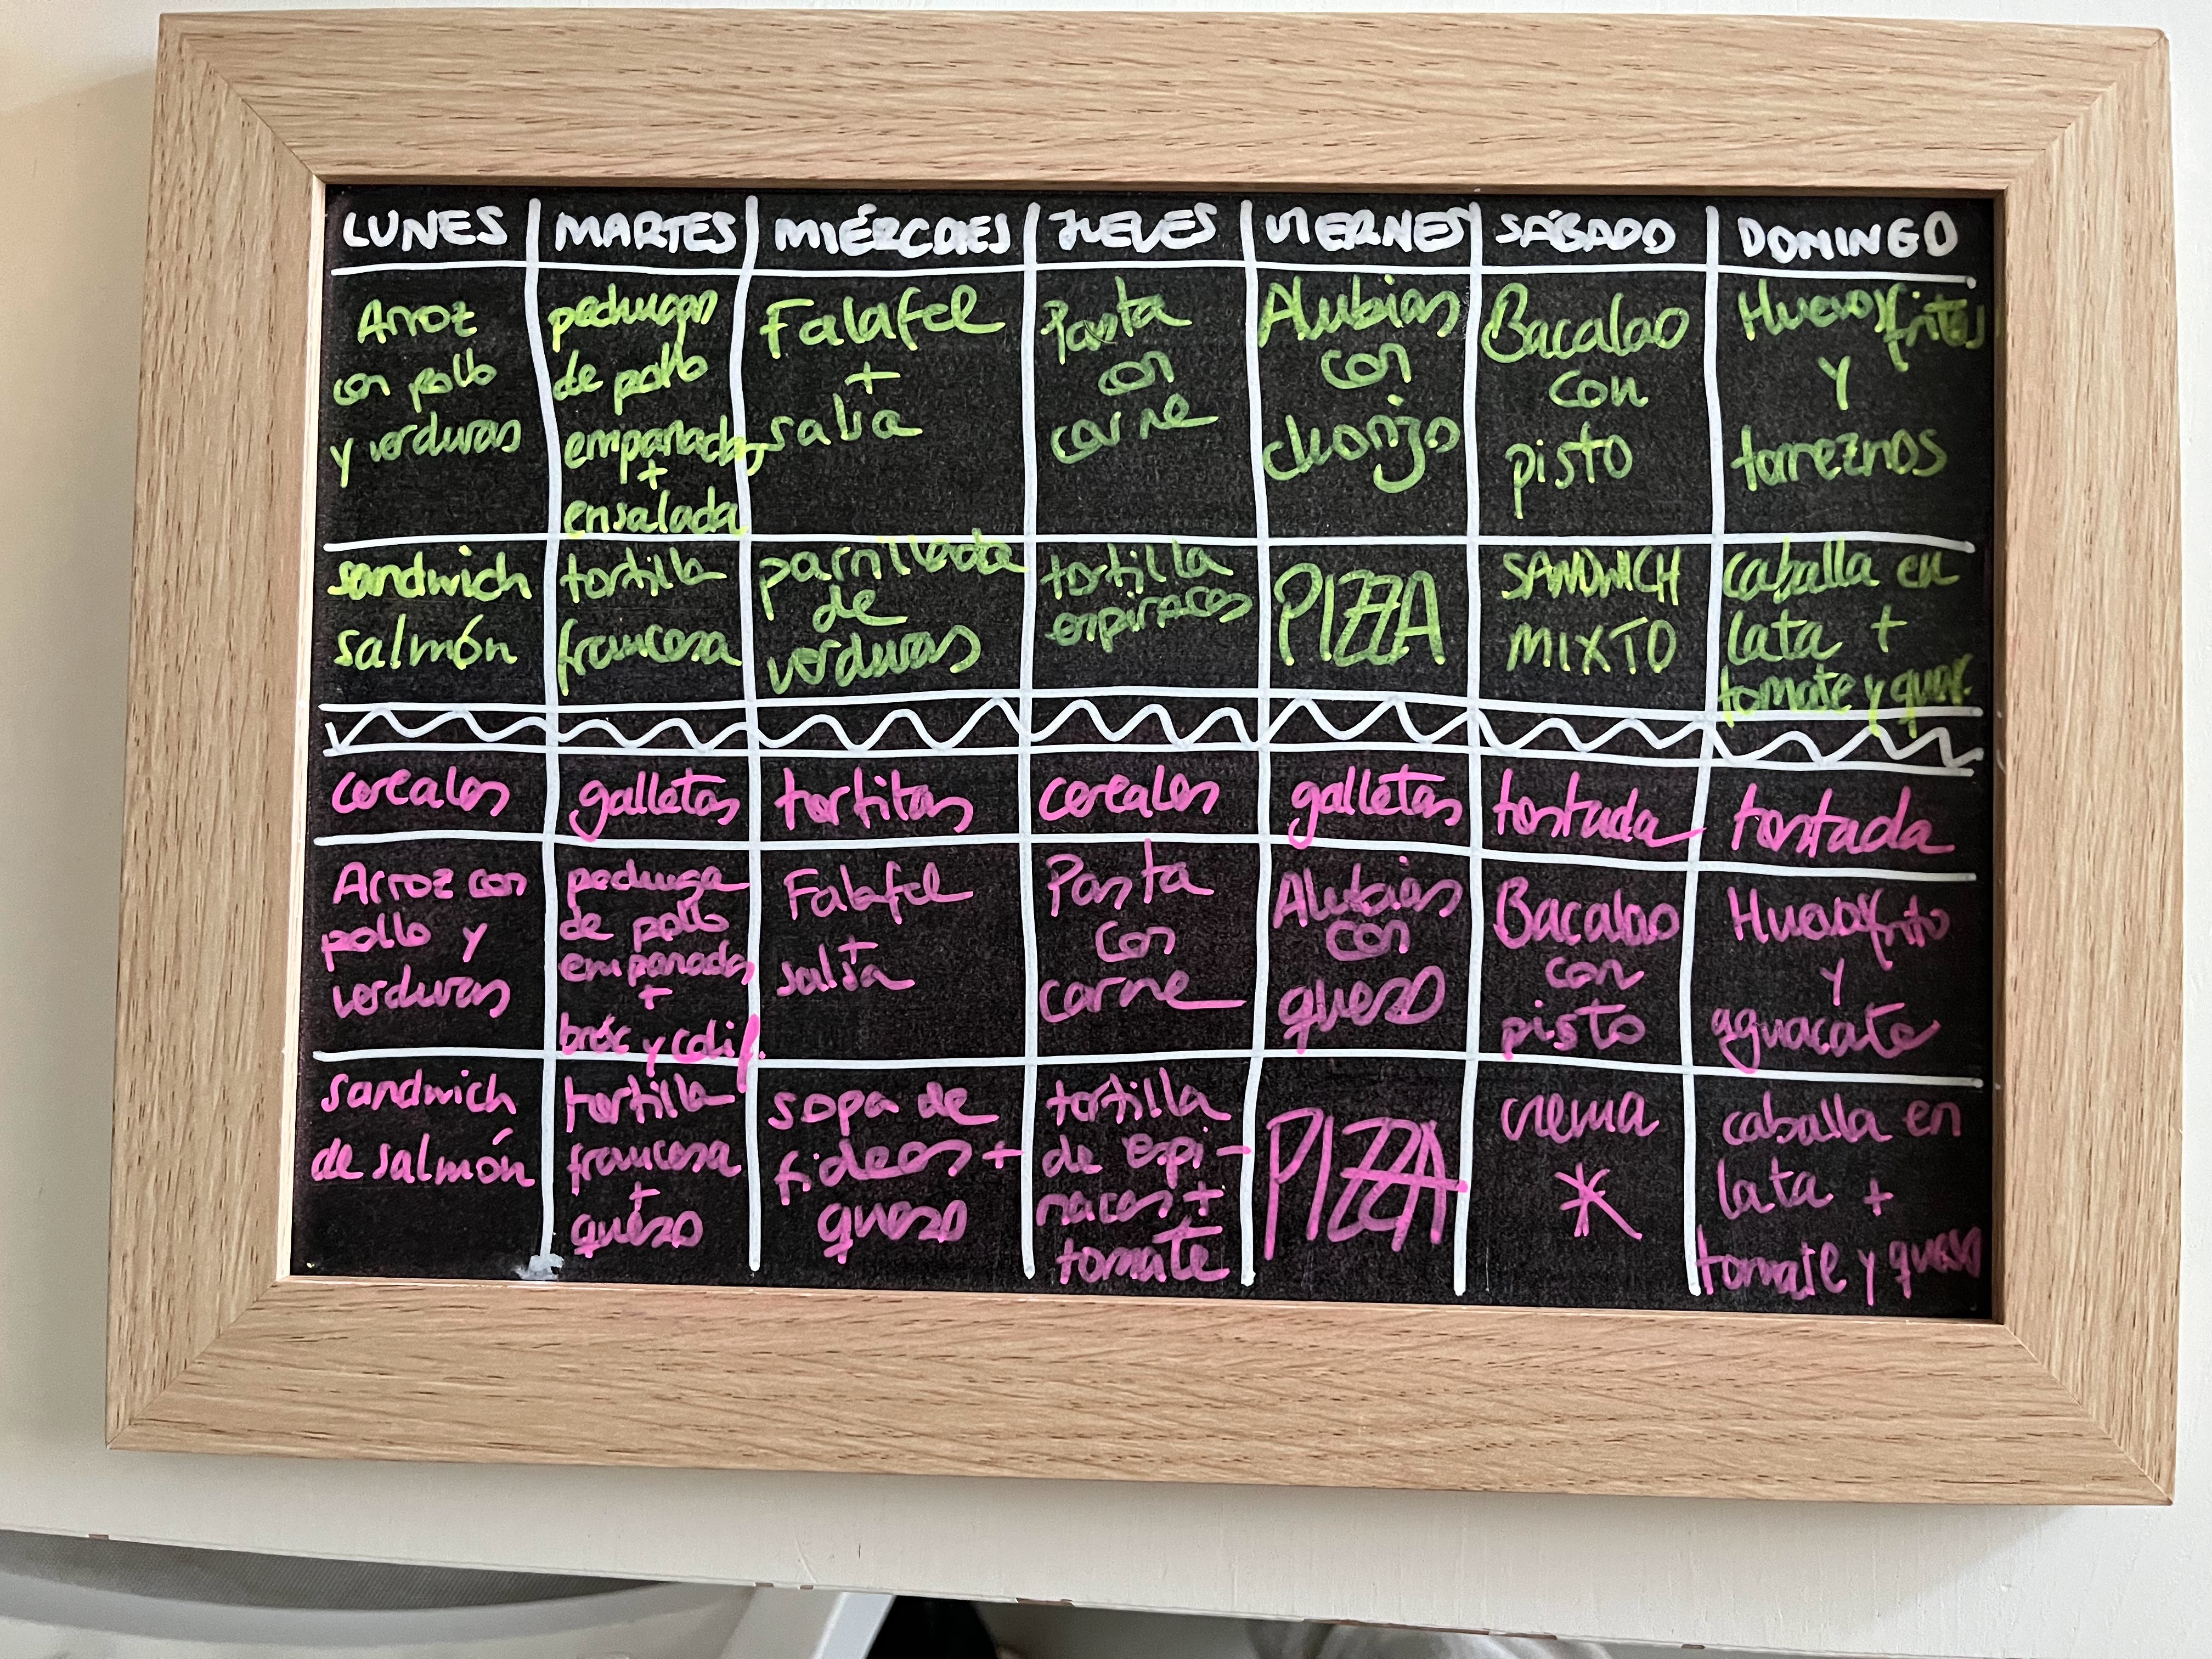 LUNES MARTES MIÉRCOLES JUEVES VIERNES SÁBADO DOMINGO
Arroz
con pollo
y verduras
pechugas
de pollo
empanadas
+
ensalada
Falafel
+
salsa
Pasta
con
carne
Alubias
con
chorizo
Bacalao
con
pisto
Huevos fritos
y
torreznos
sandwich
salmón
tortilla
francesa
parrillada
de
verduras
tortilla
espinacas
PIZZA
SANDWICH
MIXTO
caballa en
lata +
tomate y ques.
cereales
galletas
tortitas
cereales
galletas
tostada
tostada
Arroz con
pollo y
verduras
pechuga
de pollo
empanada
+
bróc y colif.
Falafel
+
salsa
Pasta
con
carne
Alubias
con
queso
Bacalao
con
pisto
Huevo frito
y
aguacate
sandwich
de salmón
tortilla
francesa
+
queso
sopa de
fideos +
queso
tortilla
de espi-
nacas +
tomate
PIZZA
crema
*
caballa en
lata +
tomate y queso